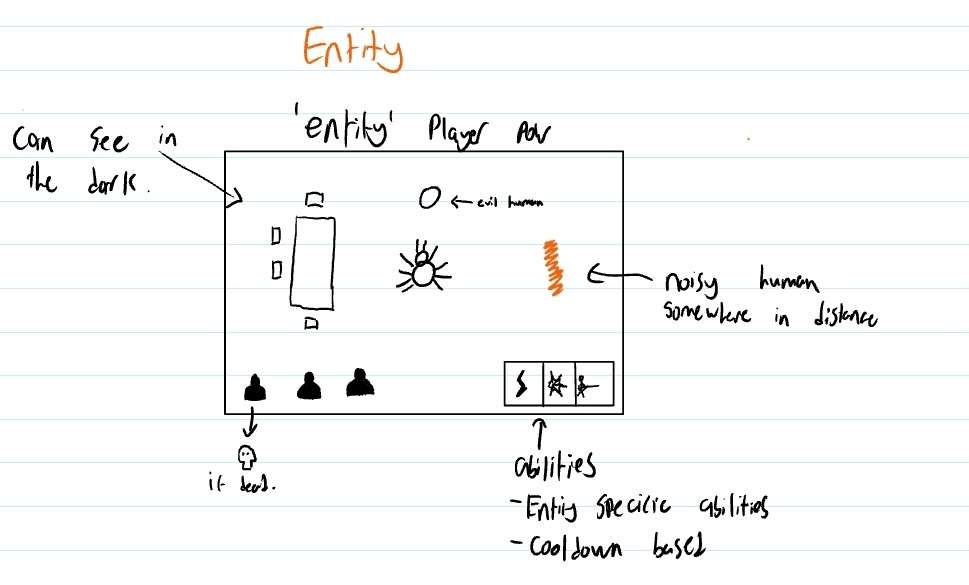 Entity
'entity' Player POV
Can see in
the dark.
← evil human
noisy human
somewhere in distance
if dead.
abilities
- Entity specific abilities
- Cooldown based